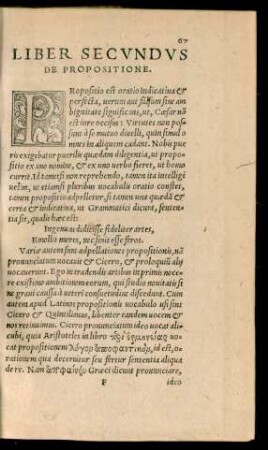 67
LIBER SECVNDVS
DE PROPOSITIONE.
PRopositio est oratio indicatiua &
perfecta, uerum aut falsum sine am
biguitate significans, ut, Cæsar nō
est iure occisus: Virtutes non pos
sunt à se mutuo diuelli, quin simul o
mnes in aliquem cadant. Nobis pue
ris exigebatur puerilis quædam diligentia, ut pro
positio ex uno nomine, & ex uno uerbo fieret, ut homo
currit. Id tametsi non reprehendo, tamen ita intelligi
uelim, ut etiamsi pluribus uocabulis oratio constet,
tamen propositio adpelletur, si tamen una quædā &
certa & indicatiua, ut Grammatici dicunt, senten-
tia sit, qualis hæc est:
Ingenuas didicisse fideliter artes,
Emollit mores, nec sinit esse feros.
Variæ autem sunt adpellationes propositionū, nā
pronunciatum uocauit & Cicero, & proloquiū alij
uocauerunt. Ego in tradendis artibus in primis nece-
re existimo ambitionem eorum, qui studio nouitatis si
ne graui caussa à ueteri consuetudine discedunt. Cum
autem apud Latinos propositionis uocabulo usi sint
& Cicero & Quintilianus, libenter eandem uocem &
nos retinuimus. Cicero pronunciatum ideo uocat ali-
cubi, quia Aristoteles in libro
uocat propositionem λόγον ἀποφαντικὸν, id est, o-
rationem qua decernitur seu fertur sententia aliqua
de re. Nam Græci dicunt pronunciare,
F ideo